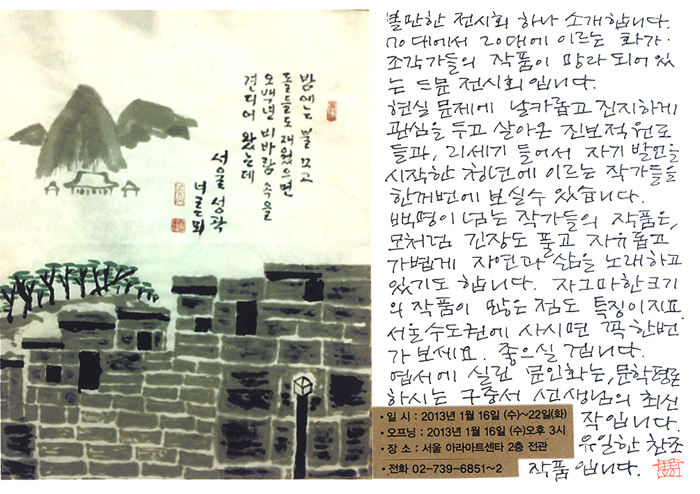 밤에는 불 끄고
돌들도 재웠으면
오백년 비바람 속을
견디어 왔는데
서울 성곽
너른뫼
볼만한 전시회 하나 소개합니다.
70대에서 20대에 이르는 화가·
조각가들의 작품이 망라 되어 있
는 드문 전시회 입니다.
현실 문제에 날카롭고 진지하게
관심을 두고 살아온 진보적 원로
들과, 21세기 들어서 자기 발언을
시작한 청년에 이르는 작가들을
한꺼번에 보실수 있습니다.
백명이 넘는 작가들의 작품은,
모처럼 긴장도 풀고 자유롭고
가볍게 자연과 삶을 노래하고
있기도 합니다. 자그마한 크기
의 작품이 많은 점도 특징이지요.
서울 수도권에 사시면 꼭 한번
가 보세요. 좋으실 겁니다.
엽서에 실린 문인화는, 문학평론
하시는 구중서 선생님의 최신
작 입니다.
유일한 찬조
작품 입니다.
• 일 시 : 2013년 1월 16일 (수)~22일(화)
• 오프닝 : 2013년 1월 16일 (수)오후 3시
• 장 소 : 서울 아라아트센타 2층 전관
• 전화 02-739-6851~2